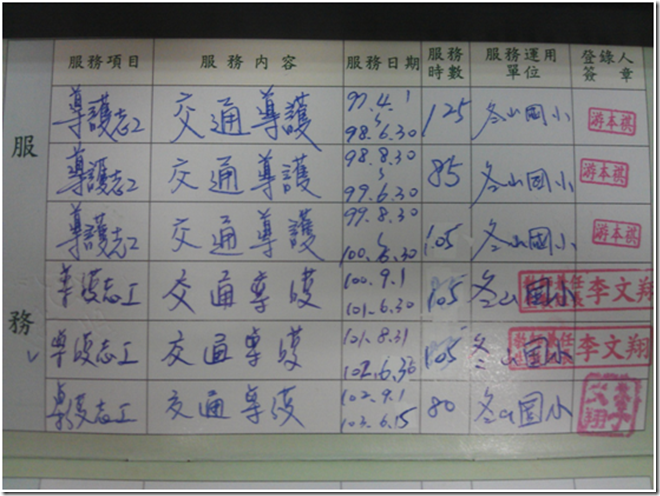 服務項目 服務內容 服務日期 服務時數 服務運用單位 登錄人簽章
服務
導護志工 交通導護 97.4.1 ~ 98.6.30 125 冬山國小 游本祺
導護志工 交通導護 98.8.30 ~ 99.6.30 85 冬山國小 游本祺
導護志工 交通導護 99.8.30 ~ 100.6.30 105 冬山國小 游本祺
導護志工 交通導護 100.9.1 101.6.30 105 冬山國小 李文翔
導護志工 交通導護 101.8.31 102.6.30 105 冬山國小 李文翔
導護志工 交通導護 102.9.1 103.6.15 80 冬山國小